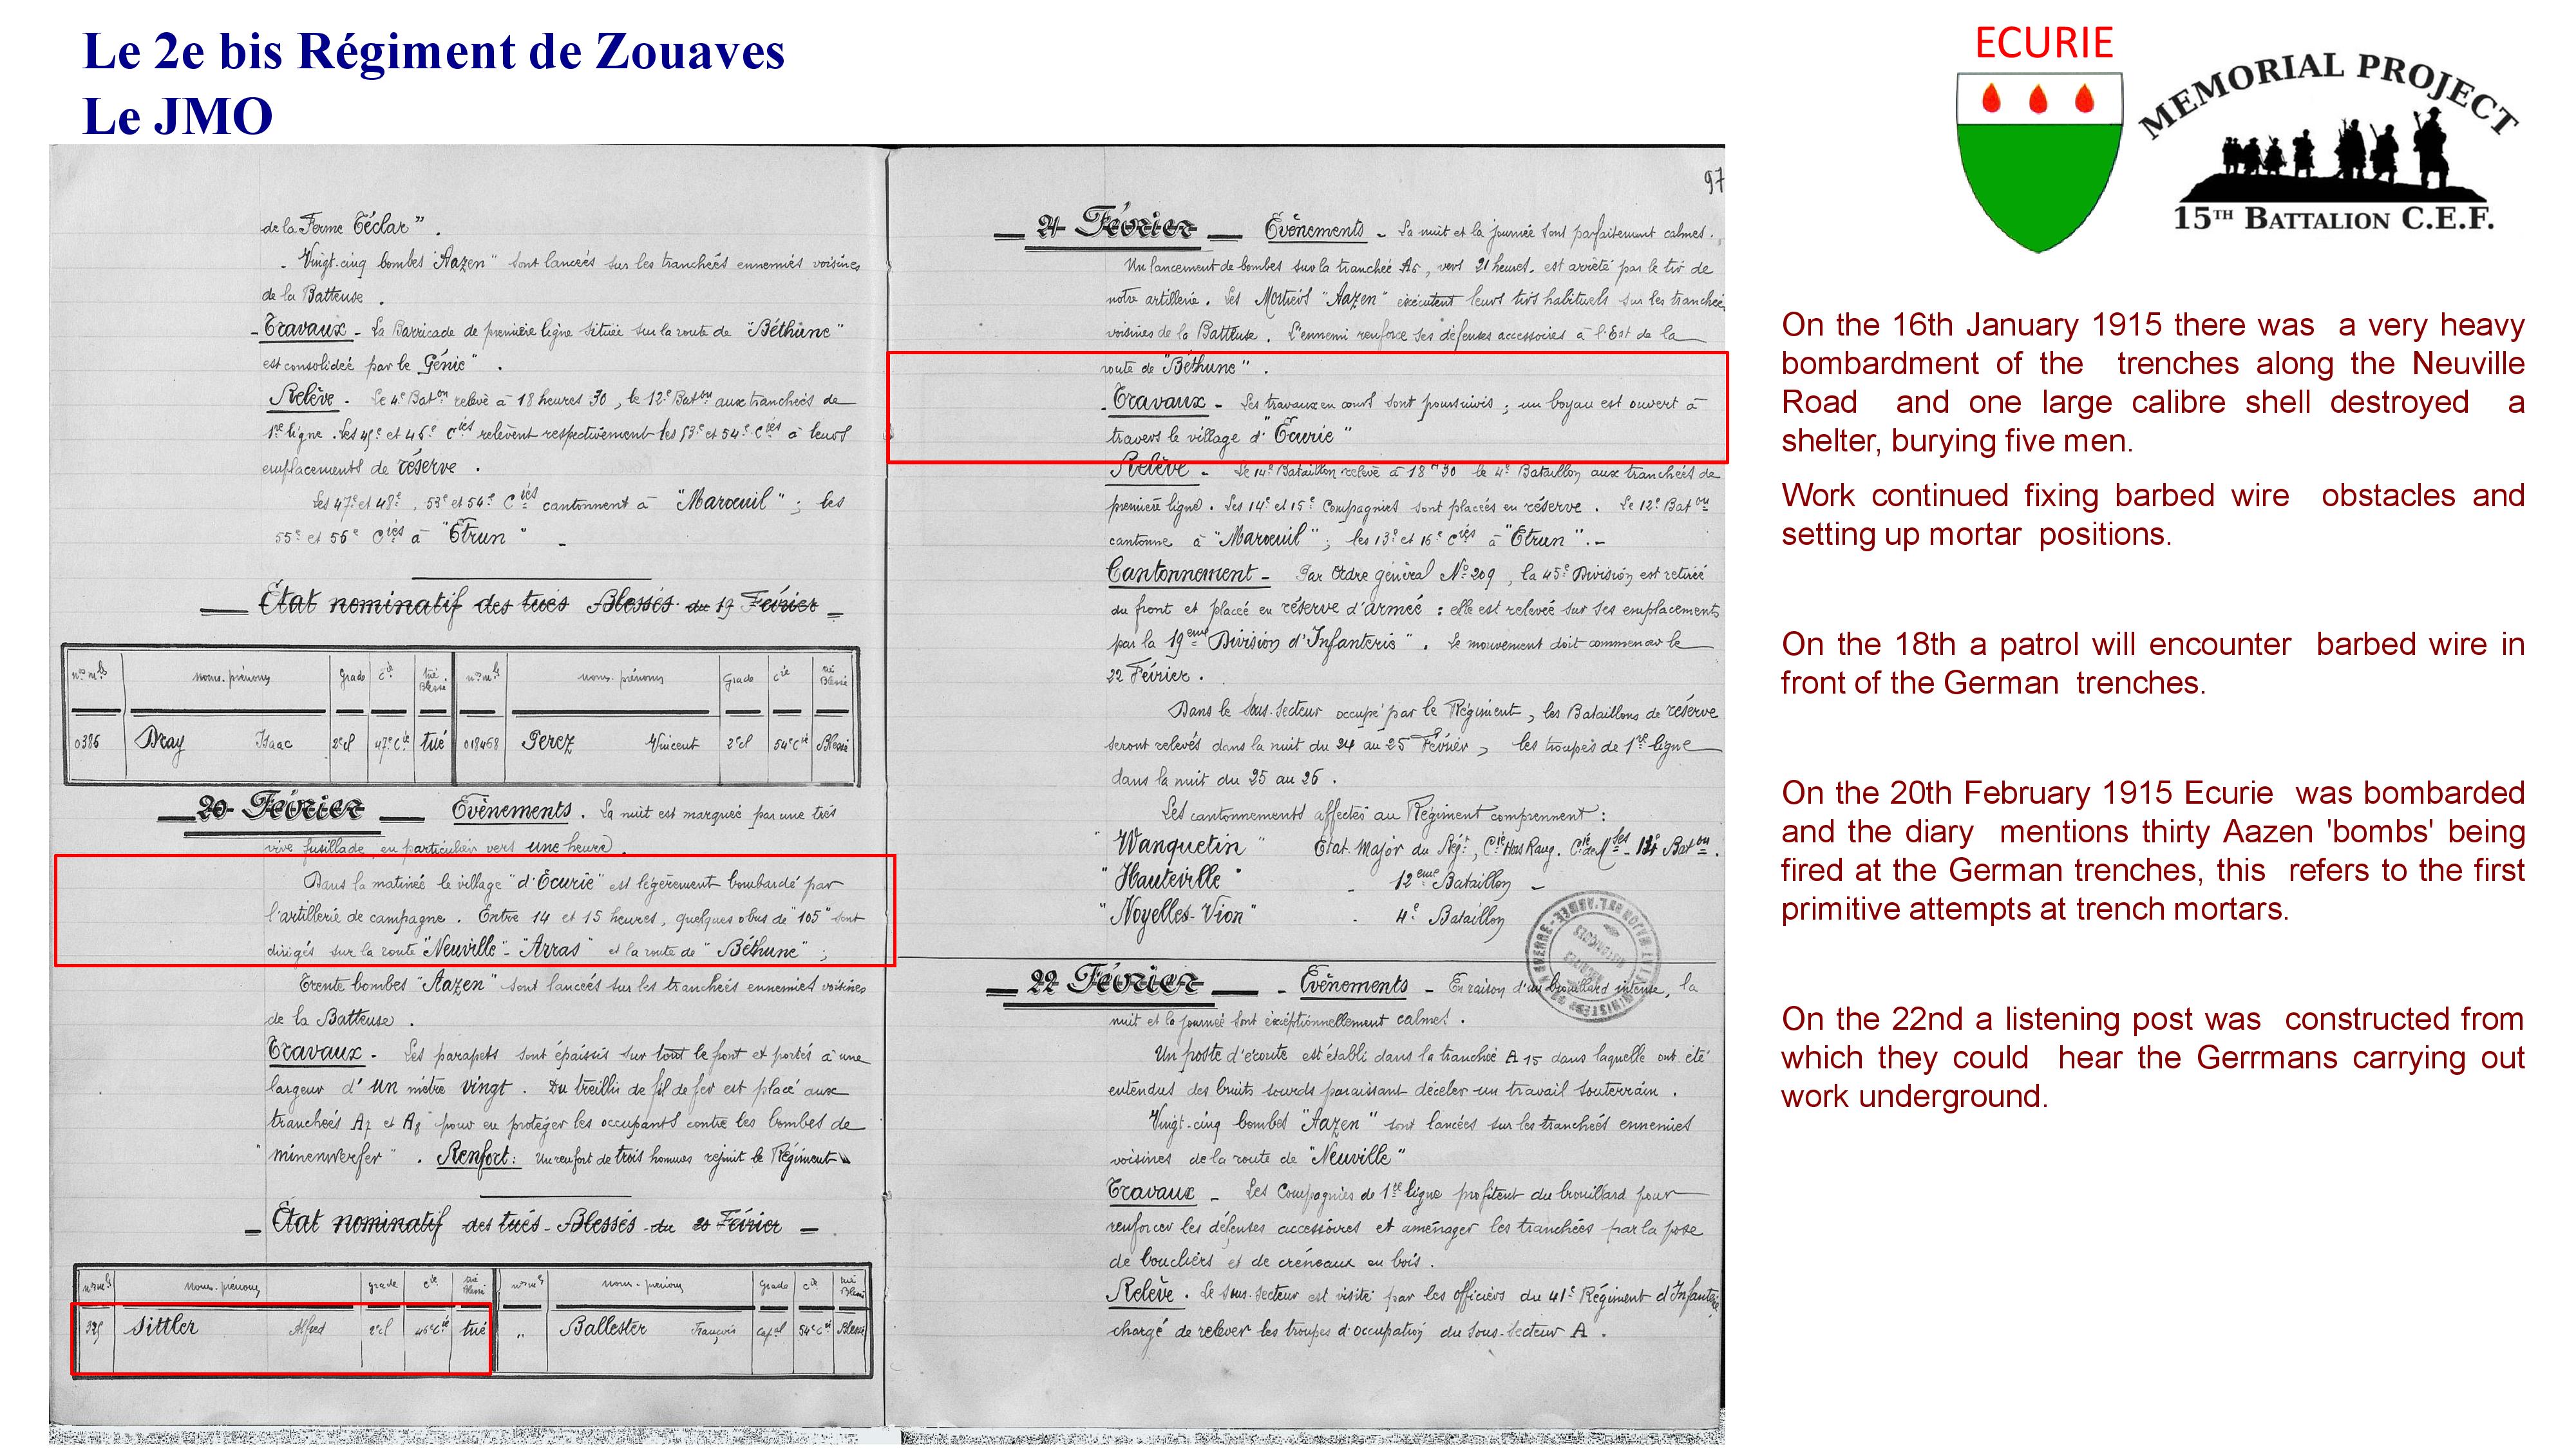 Le 2e bis Régiment de Zouaves
Le JMO
ECURIE
MEMORIAL PROJECT
15TH BATTALION C.E.F.
de la Ferme
- Vingt-cinq bombes "Aazen" sont lancées sur les tranchées ennemies voisines
de la Batteuse .
- Travaux - La Barricade de première ligne située sur la route de "Béthune"
est consolidée par le Génie" .
Relève - Le 4e Baton relève à 18 heures 30, le 12e Baton aux tranchées de
1re ligne . Les et 46e Cies relèvent respectivement les 53e et 54e Cies à leurs
emplacements de réserve .
Les 47e et 48e , 53e et 54e Cies cantonnent à "Maroeuil" ; les
55e et 56e Cies à "Etrun" -
État nominatif des tués Blessés du 19 Février
noms. prénoms Grade Cie tué Blessé noms. prénoms Grade Cie tué Blessé
0386 Dray Isaac 2e cl 47e Cie tué 018468 Perez Vincent 2e cl 54e Cie Blessé
20 Février - Évènements . La nuit est marquée par une très
vive fusillade, en particulier vers une heure .
Dans la matinée le village "d'Écurie" est légèrement bombardé par
l'artillerie de campagne . Entre 14 et 15 heures, quelques obus de "105" sont
dirigés sur la route "Neuville"-"Arras" et la route de "Béthune" ;
Trente bombes "Aazen" sont lancées sur les tranchées ennemies voisines
de la Batteuse .
Travaux - Les parapets sont épaissis sur tout le front et portés à une
largeur d'un mètre vingt . Du treillis de fil de fer est placé aux
tranchées A7 et A8 pour en protéger les occupants contre les bombes de
"minenwerfer" . Renfort: Un renfort de trois hommes rejoint le Régiment
- État nominatif des tués - Blessés - du 20 Février -
noms. prénoms grade Cie tué Blessé noms - prénoms Grade Cie tué Blessé
Sittler Alfred 2e cl 46e Cie tué " Ballester François Capal 54e Cie Blessé
97
21 Février - Évènements - La nuit et la journée sont parfaitement calmes .
Un lancement de bombes sur la tranchée , vers 21 heures, est arrêté par le tir de
notre artillerie . Les Mortiers "Aazen" exécutent leurs tirs habituels sur les tranchées
voisines de la Batteuse . L'ennemi renforce ses défenses accessoires à l'Est de la
route de "Béthune" .
- Travaux - Les travaux en cours sont poursuivis ; un boyau est ouvert à
travers le village d'"Écurie"
Relève - Le 14e Bataillon relève à 18 h 30 le 4e Bataillon aux tranchées de
première ligne . Les 14e et 15e Compagnies sont placées en réserve . Le 12e Baton
cantonne à "Maroeuil" ; les 13e et 16e Cies à "Etrun" . -
Cantonnement - Par Ordre général No 209 , la 45e Division est retirée
du front et placée en réserve d'armée : elle est relevée sur ses emplacements
par la 19eme Division d'Infanterie" . Le mouvement doit commencer le
22 Février .
Dans le sous-secteur occupé par le Régiment , les Bataillons de réserve
seront relevés dans la nuit du 24 au 25 Février , les troupes de 1re ligne
dans la nuit du 25 au 26 .
Les cantonnements affectés au Régiment comprennent :
"Wanquetin" État Major du Régt, Cie Hors Rang. Cie de Mses - Baton .
"Hauteville" - 12eme Bataillon -
"Noyelles-Vion" - 4e Bataillon
22 Février - Évènements - En raison d'un brouillard intense, la
nuit et la journée sont exceptionnellement calmes .
Un poste d'écoute est établi dans la tranchée A 15 dans laquelle ont été
entendus des bruits sourds paraissant déceler un travail souterrain .
Vingt-cinq bombes "Aazen" sont lancées sur les tranchées ennemies
voisines de la route de "Neuville"
Travaux - Les Compagnies de 1re ligne profitent du brouillard pour
renforcer les défenses accessoires et aménager les tranchées par la pose
de boucliers et de créneaux en bois .
Relève . Le sous-secteur est visité par les officiers du 41e Régiment d'Infanterie
chargé de relever les troupes d'occupation du sous-secteur A .
On the 16th January 1915 there was a very heavy
bombardment of the trenches along the Neuville
Road and one large calibre shell destroyed a
shelter, burying five men.
Work continued fixing barbed wire obstacles and
setting up mortar positions.
On the 18th a patrol will encounter barbed wire in
front of the German trenches.
On the 20th February 1915 Ecurie was bombarded
and the diary mentions thirty Aazen 'bombs' being
fired at the German trenches, this refers to the first
primitive attempts at trench mortars.
On the 22nd a listening post was constructed from
which they could hear the Gerrmans carrying out
work underground.